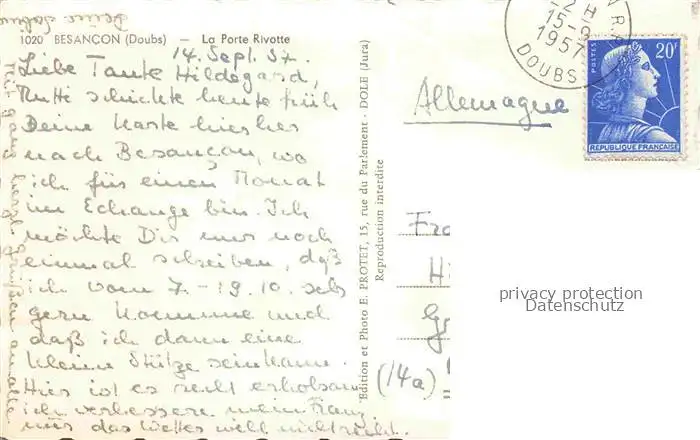 1020 BESANÇON (Doubs) — La Porte Rivotte
14. Sept. 57.
Liebe Tante Hildegard,
Mutti schickte heute früh
Deine Karte hierher
nach Besançon, wo
ich für einen Monat
im Echange bin. Ich
möchte Dir nur noch
einmal schreiben, daß
ich vom 7. - 19.10. sehr
gern komme und
daß ich dann eine
kleine Stütze sein kann.
Hier ist es recht erholsam,
ich verbessere mein Franz.
nur das Wetter will nicht recht.
Deine Sabine
Mit ganz herzl. Grüßen an alle
Edition et Photo E. PROTET, 15, rue du Parlement - DOLE (Jura)
Reproduction interdite
15-9
1957
DOUBS
POSTES
20F
REPUBLIQUE FRANÇAISE
Allemagne
Fra
H
(14a)
privacy protection
Datenschutz